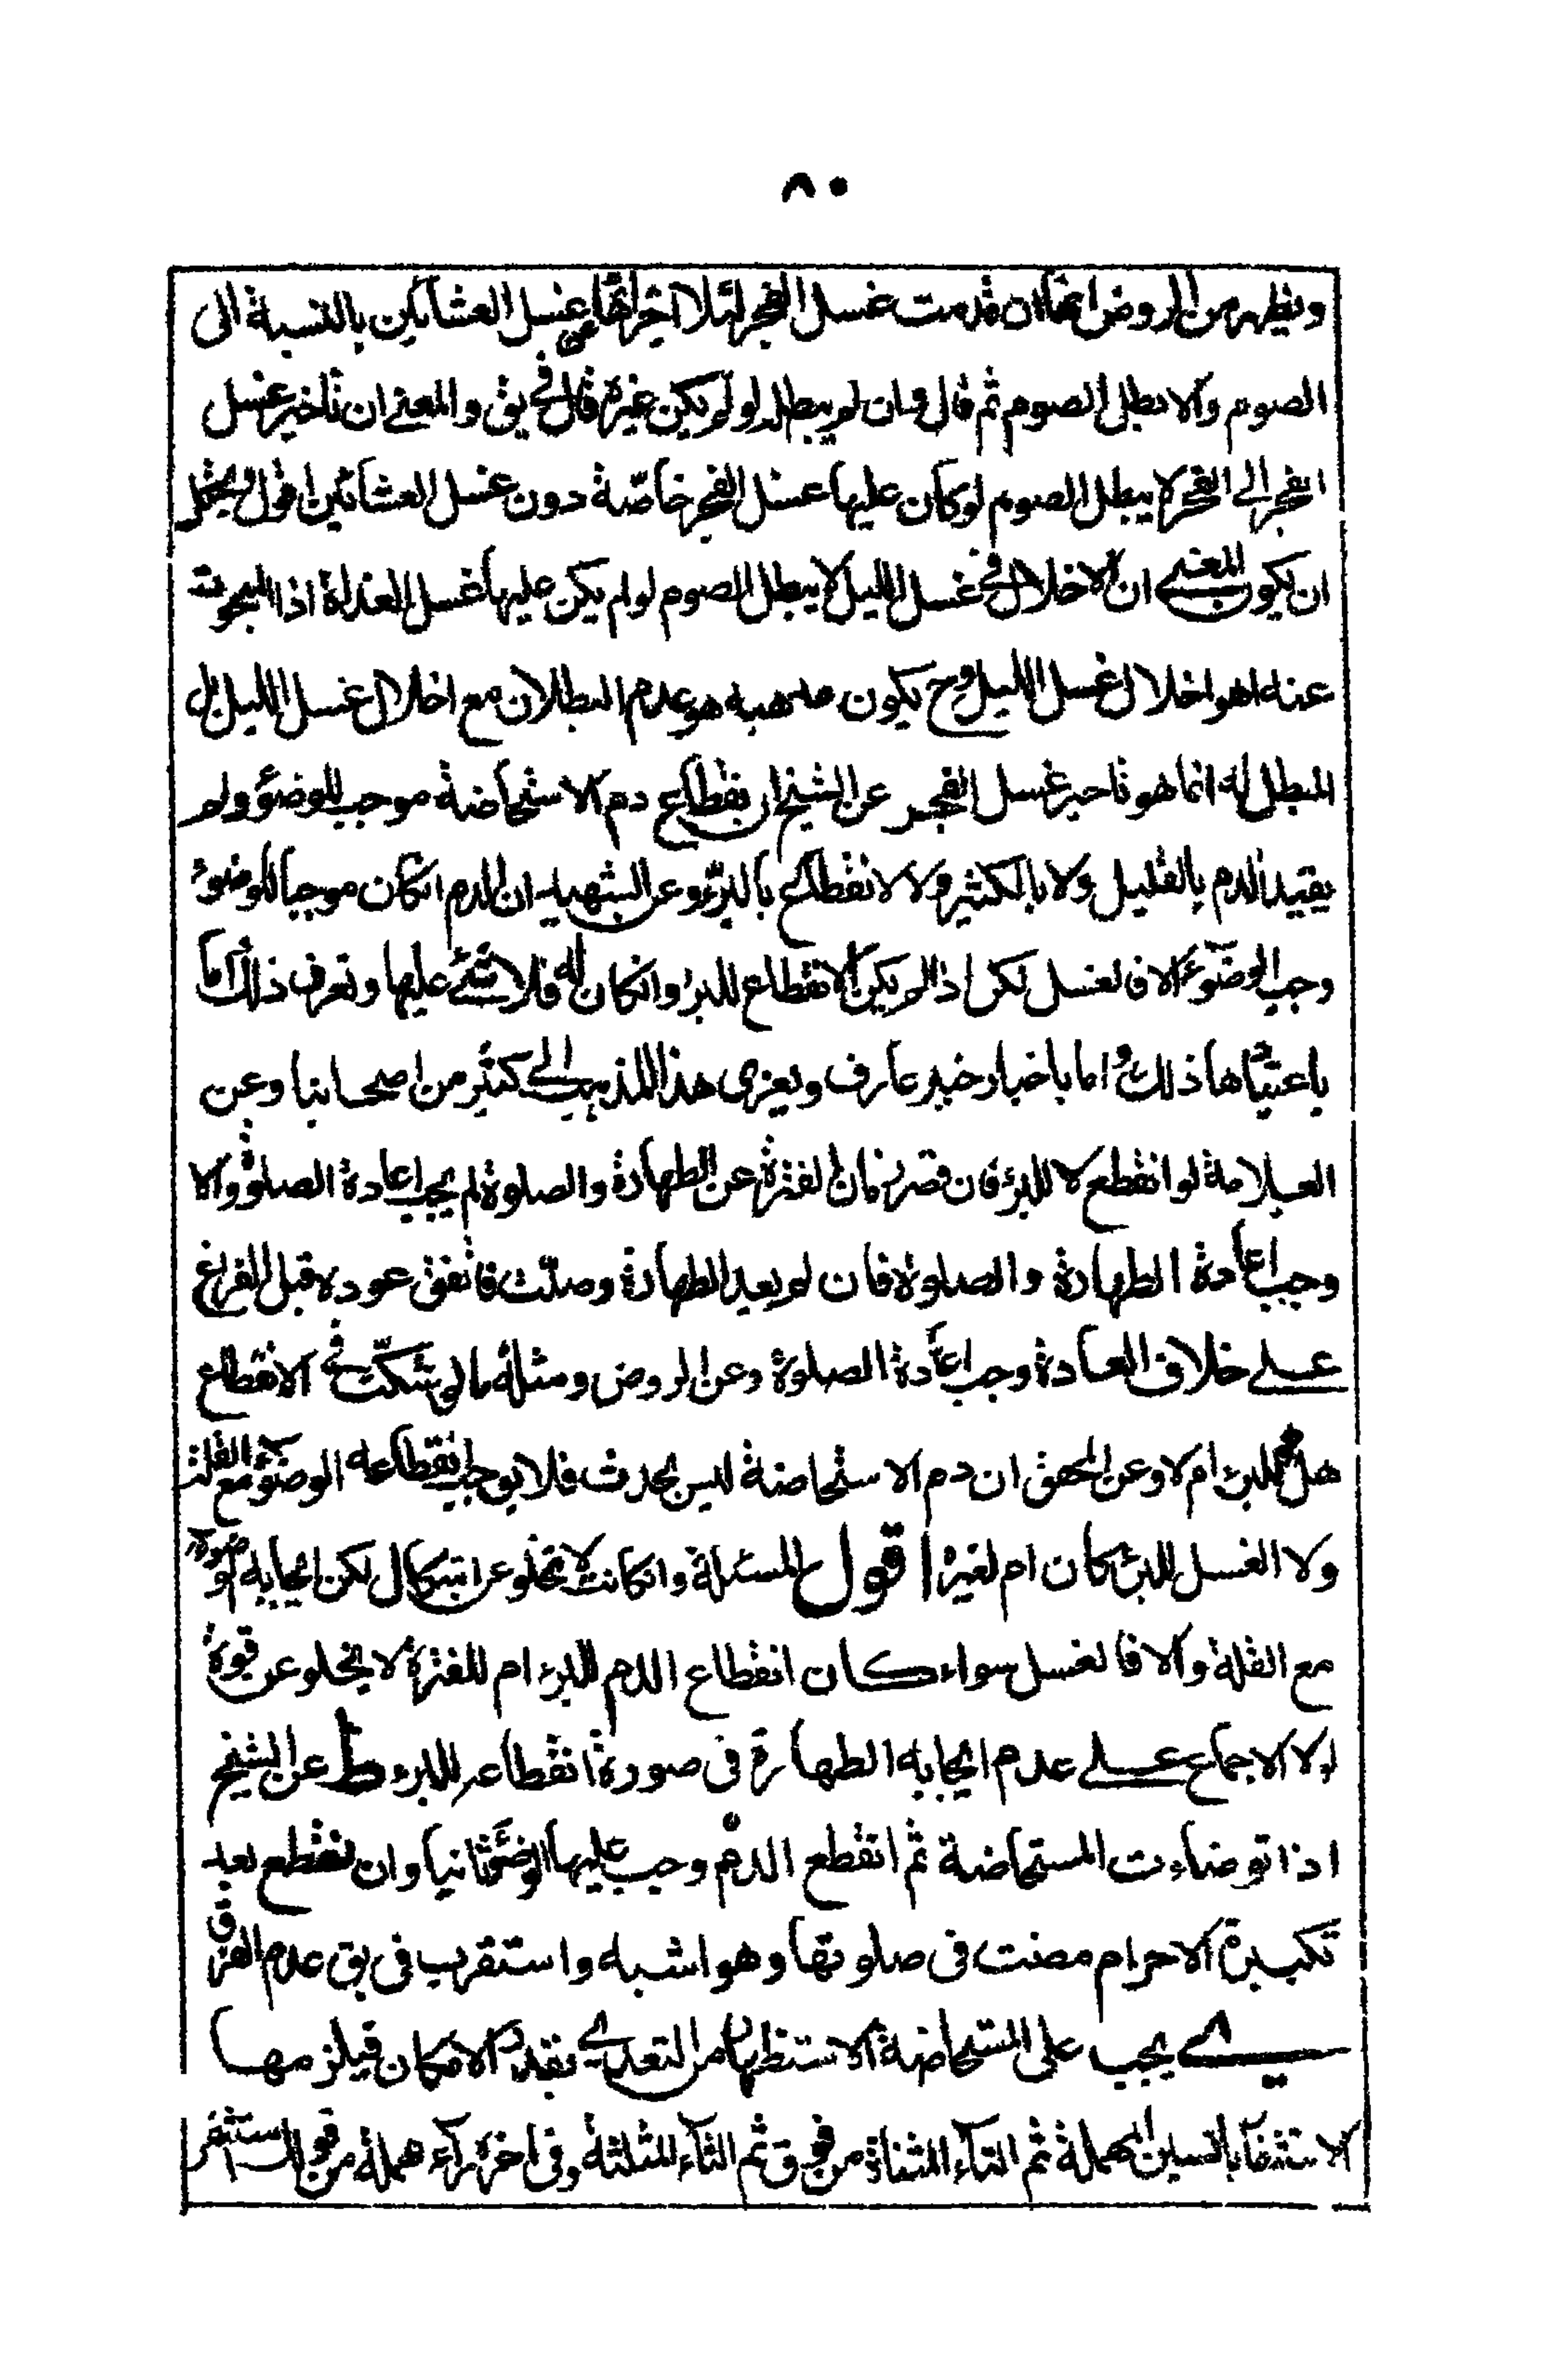 ٨٠
ويظهر من الروض انها ان قدمت غسل الفجر ليلا اجزأها عن غسل العشائين بالنسبة الى
الصوم والا بطل الصوم ثم قال وان لم يبطل لو لم يكن غيره قال في يق والمعنى ان تاخير غسل
الفجر الى الفجر لا يبطل الصوم لو كان عليها غسل الفجر خاصّة دون غسل العشائين اقول ويحتمل
ان يكون المعنى ان الاخلال في غسل الليل لا يبطل الصوم لو لم يكن عليها غسل الغداة اذا المبحوث
عنه اهو اخلال غسل الليل وح يكون مذهبه هو عدم البطلان مع اخلال غسل الليل بل
المبطل له انما هو تاخير غسل الفجر عن الشيخ ان بقطاع دم الاستحاضة موجب للوضوء ولم
يقيد الدم بالقليل ولا بالكثير ولا الانقطاع بالبرء وعن الشهيد ان الدم انكان موجبا للوضوء
وجب الوضوء والا فالغسل لكن اذا لم يكن الانقطاع للبرء وانكان له فلا شئ عليها وتعرف ذلك اما
باعتيادها ذلك واما باخبار خبير عارف ويعزى هذا المذهب الى كثير من اصحابنا وعن
العلامة لو انقطع لا للبرء فان قصر زمان الفترة عن الطهارة والصلوة لم يجب اعادة الصلوة والا
وجب اعادة الطهارة والصلوة فان لم يعيد الطهارة وصلّت فاتفق عوده قبل الفراغ
على خلاف العادة وجب اعادة الصلوة وعن الروض ومثله ما لو شكّت في الانقطاع
هل هو للبرء ام لا وعن المحقق ان دم الاستحاضة ليس بحدث فلا يوجب انقطاعه الوضوء مع القلة
ولا الغسل للبرء كان ام لغيره اقول المسئلة وانكانت لا تخلو عن اشكال لكن ايجابه الوضوء
مع القلة والا فالغسل سواء كان انقطاع الدم للبرء ام للفترة لا يخلو عن قوة
لولا الاجماع على عدم ايجابه الطهارة في صورة انقطاعه للبرء ط عن الشيخ
اذا توضاءت المستحاضة ثم انقطع الدم وجب عليها الوضوء ثانيا وان نقطع بعد
تكبيرة الاحرام مضت في صلوتها وهو اشبه واستقرب في يق عدم الفرق
ى يجب على المستحاضة الاستظهار من التعدي بقدر الامكان فيلزمها
الاستثفار بالسين المهملة ثم التاء المثناة من فوق ثم الثاء المثلثة وفي اخره راء مهملة من قولك استثفر